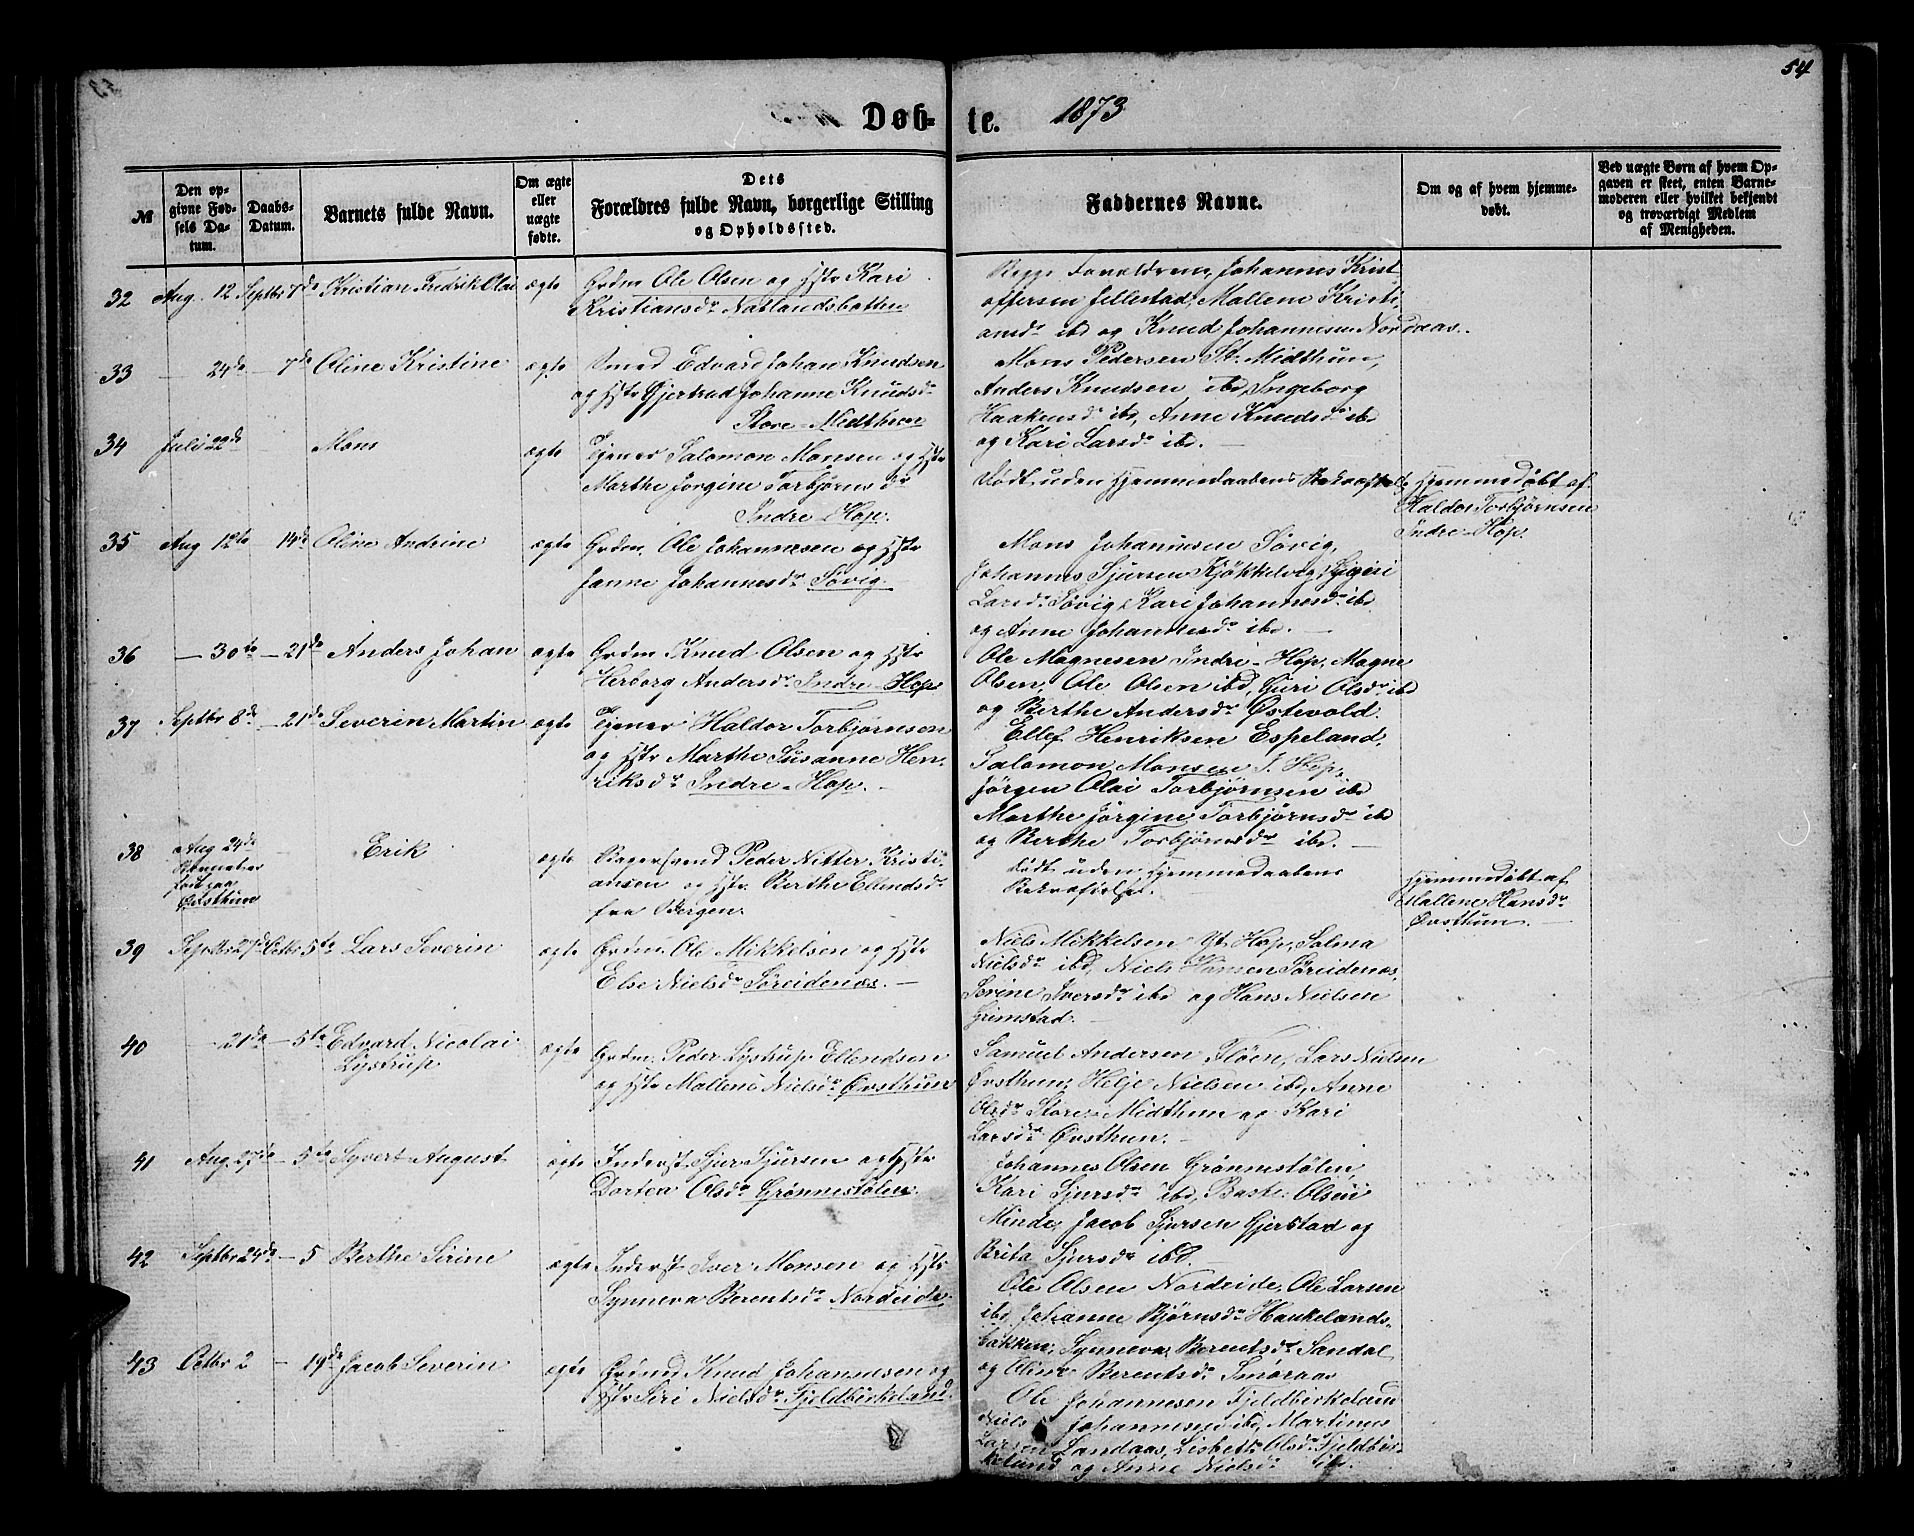 54
Døb-te. 1873
№
Den opgivne Fødsels Datum.
Daabs-Datum.
Barnets fulde Navn.
Om ægte eller uægte fødte.
Dets Forældres fulde Navn, borgerlige Stilling og Opholdssted.
Faddernes Navne.
Om og af hvem hjemmedøbt.
Ved uægte Børn af hvem Opgaven er skeet, enten Barnemoderen eller hvilket bekjendt og troværdigt Medlem af Menigheden.
32 Aug. 12 Septbr 7de Kristian Fredrik Olai ægte Grdm Ole Olsen og Hstr Kari
Kristiansdr Natlandsbotten
Begge Forældrene, Johannes Krist
offersen Jellestad, Mallene Kristi,
ansdr ibd og Knud Johannesen Nordaas.
33 — 24de — 7de Oline Kristine ægte Smed Edvard Johan Knudsen
og Hstr Gjertrud Johanne Knudsdr
Store-Midthun
Mons Pedersen St. Midthun,
Anders Knudsen ibd, Ingeborg
Haakensdr ibd, Anne Knudsdr ibd
og Kari Larsdr ibd. —
34 Juli 22de Mons ægte Tjener Salomon Monsen og Hstr
Marthe Jørgine Torbjørnsdr
Indre-Hop.
Dødt uden Hjemmedaabens Bekræftelse
Hjemmedøbt af
Haldor Torbjørnsen
Indre-Hop.
35 Aug 12te — 14de Oline Andrine ægte Grdm. Ole Johannesen og Hstr
Janne Johannesdr Søvig.
Mons Johannesen Søvig,
Johannes Sjursen Kjøkkelvig, Sigri
Larsdr Søvig, Kari Johannesdr ibd
og Anne Johannesdr ibd. —
36 — 30te — 21de Anders Johan ægte Grdm Knud Olsen og Hstr
Herborg Andersdr Indre-Hop
Ole Magnesen Indre-Hop, Magne
Olsen, Ole Olsen ibd, Guri Olsdr ibd
og Berthe Andersdr Østevold.
37 Septbr 8de — 21de Severin Martin ægte Tjener Haldor Torbjørnsen
og Hstr Marthe Susanne Hen-
riksdr Indre-Hop. —
Ellef Henriksen Espeland,
Salomon Monsen I. Hop,
Jørgen Olai Torbjørnsen ibd
Marthe Jørgine Torbjørnsdr ibd
og Berthe Torbjørnsdr ibd. —
38 Aug 24de
født paa
Øvsthun
Erik ægte Bagersvend Peder Nitter Kristi-
ansen og Hstr. Berthe Ellendsdr
fra Bergen.
Dødt uden Hjemmedaabens
Bekræftelse.
Hjemmedøbt af
Mallene Hansdr
Øvsthun.
39 Septbr 27de Octbr 5te Lars Severin ægte Grdm. Ole Mikkelsen og Hstr
Else Nielsdr Søreidenæs. —
Niels Mikkelsen Yt. Hop, Salma
Nielsdr ibd, Niels Hansen Søreidenæs,
Serine Iversdr ibd og Hans Nielsen
Grimstad. —
40 — 21de — 5te Edvard Nicolai
Lystrup
ægte Grdm. Peder Lystrup Ellendsen
og Hstr Mallene Nielsdr Øvsthun
Samuel Andersen Fløen, Lars Nielsen
Øvsthun, Helje Nielsen ibd, Anne
Olsdr Store-Midthun og Kari
Larsdr Øvsthun. —
41 Aug. 27de — 5te Syvert August ægte Inderst Sjur Sjursen og Hstr
Dortea Olsdr Grønnestølen.
Johannes Olsen Grønnestølen,
Kari Sjursdr ibd, Baste Olsen
Minde, Jacob Sjursen Gjerstad og
Brita Sjursdr ibd.
42 Septbr 24de — 5 Berthe Sirine ægte Inderst Iver Monsen og Hstr
Synneva Berentsdr Nordeide.
Ole Olsen Nordeide, Ole Larsen
ibd, Johanne Bjørnsdr Haukelands-
bakken, Synneva Berentsdr Sandal
og Oline Berentsdr Smøraas
43 Octbr 2 — 19de Jacob Severin ægte Grdmd Knud Johannesen og
Hstr Siri Nielsdr Fjeldbirkeland.
Ole Johannesen Fjeldbirkeland
Niels Johannesen ibd, Martinus
Larsen Landaas, Lisbet Olsdr Fjeldbir-
keland og Anne Nielsdr ibd.